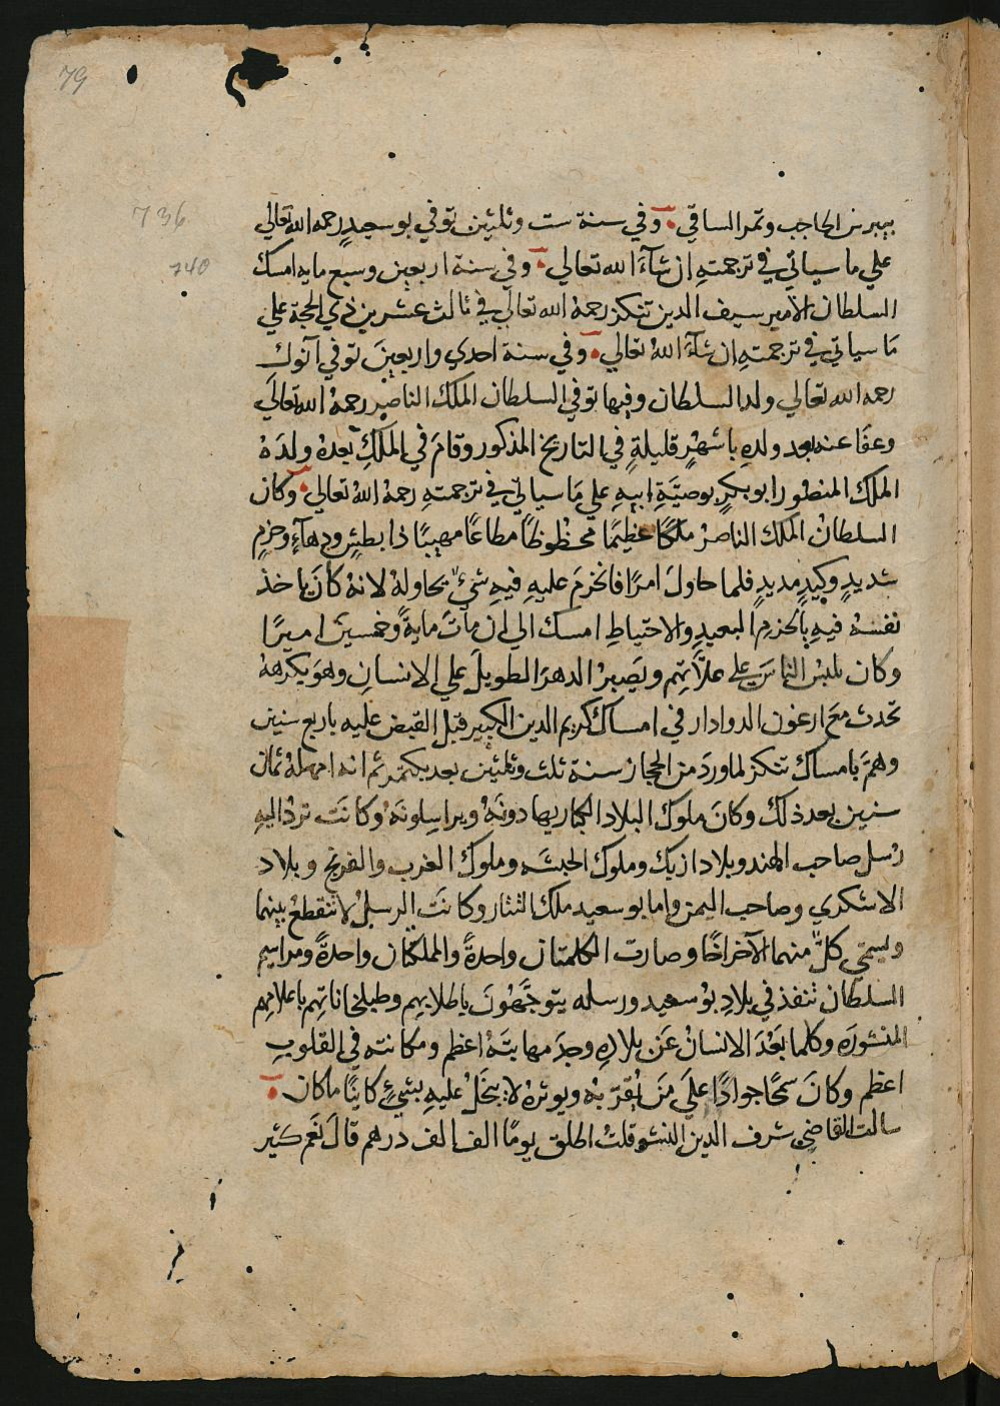 79
بيبرس الحاجب وتمر الساقي ۰ وفي سنة ست وثلثين توفي بو سعيدٍ رحمه الله تعالي
736
علي ما سياتي في ترجمتهِ ان شآءَ الله تعالي ۰ وفي سنة اربعين وسبع مايه امسك
740
السلطان الأمير سيف الدين تنكز رحمهُ الله تعالي في ثالث عشرين ذي الحجة علي
مَا سياتي في ترجمتهِ ان شآءَ اللهُ تعالي ۰ وفي سنة احدي واربعينَ توفي آنوك
رحمه الله تعالي ولد السلطان وفيها توفي السلطان الملك الناصر رحمهُ الله تعالَي
وعفَا عنه بعد ولدهِ باشهُرٍ قليلةٍ في التاريخ المذكور وقامَ في الملكِ بعدهُ ولدَهُ
الملك المنصور ابو بكرٍ بوصيَّةِ ابيهِ علي مَا سياتي في ترجمتهِ رحمهُ اللهُ تعالي ۰ وكان
السلطانُ الملك الناصرُ ملكًا عظيمًا محظوظًا مطاعًا مهيبًا ذا بطشٍ ودهآءٍ وحزمٍ
شديدٍ وكيدٍ مديدٍ فلما حاولَ امرًا فانخرمَ عليهِ فيهِ شيءٌ يحاولهُ لانهُ كانَ ياخذ
نفسهُ فيهِ بالحزمِ البعيدِ والاحتياطِ امسك الي ان ماتَ مايةً وخمسينَ اميرًا
وكان يلبسُ الناسَ علي علاَّتهِم ويَصبرُ الدهرَ الطويلَ علي الانسانِ وهوَ يكرههُ
تحدث معَ ارغون الدوادار في امساك كريم الدين الكبير قبل القبض عليه باربع سنين
وهمَّ بامساك تنكز لما وردَ من الحجاز سنة ثلث وثلثين بعد بكتمر ثم انه امهلهُ ثمان
سنين بعد ذلك وكانَ ملوك البلاد الكبار يهادونَهُ ويراسلونَهُ وكانَت تردُ اليهِ
رُسل صاحب الهند وبلاد ازبك وملوك الحبشَه وملوك الغرب والفرنج وبلاد
الاشكري وصاحب اليمن واما بو سعيد ملك التتار وكانَت الرسلُ لا تنقطعُ بينهما
ويسمّي كلٌّ منهما الآخر اخًا وصارت الكلمتان واحدةً والمملكتان واحدةً ومراسيم
السلطان تنفذ في بلادِ بوُ سعيد ورسله يتوجَّهُونَ باطلابهِم وطبلخاناتهِم باعلامهِم
المنشورَه وكلما بَعُدَ الانسانُ عَن بلادهِ وجدَ مهابتَهُ اعظم ومكانته في القلوبِ
اعظم وكانَ سمحًا جوادًا علَي مَن يُقرّبهُ ويوثرهُ لا يبخَلُ عليهِ بشيءٍ كاينًا ماكان ۰
سالت القاضِي شرف الدين النشو قلتُ اطلق يومًا الف الف درهم قالَ نعَم كثير